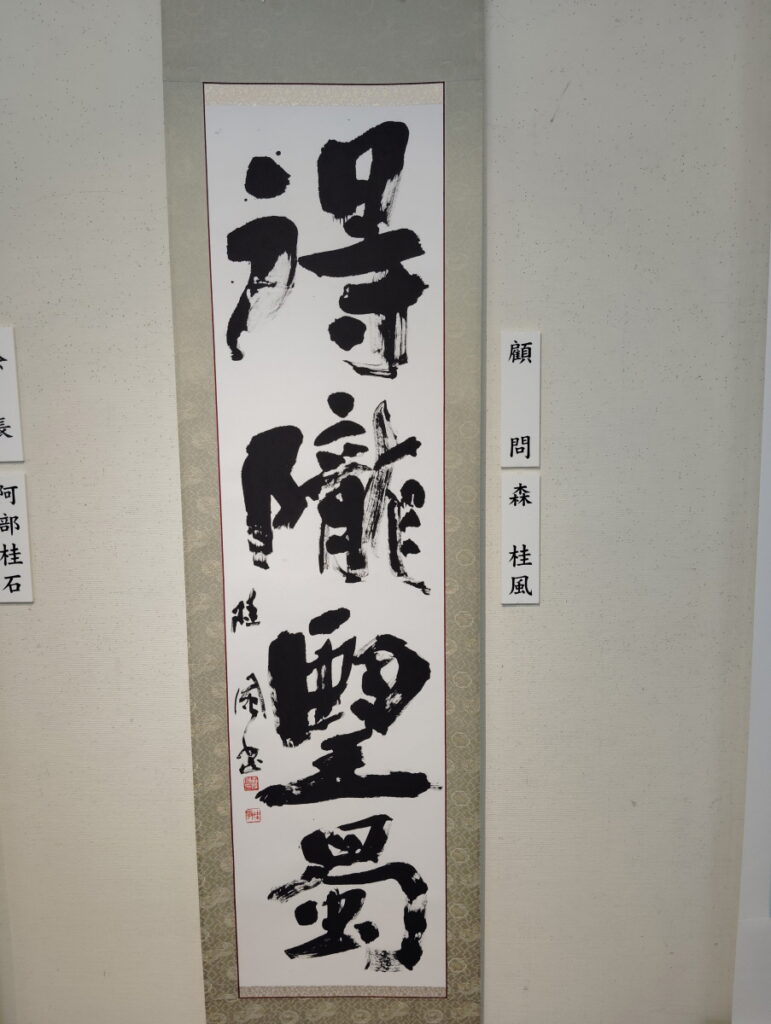 得隴望蜀
桂風書
顧問
森 桂風
長
阿部桂石